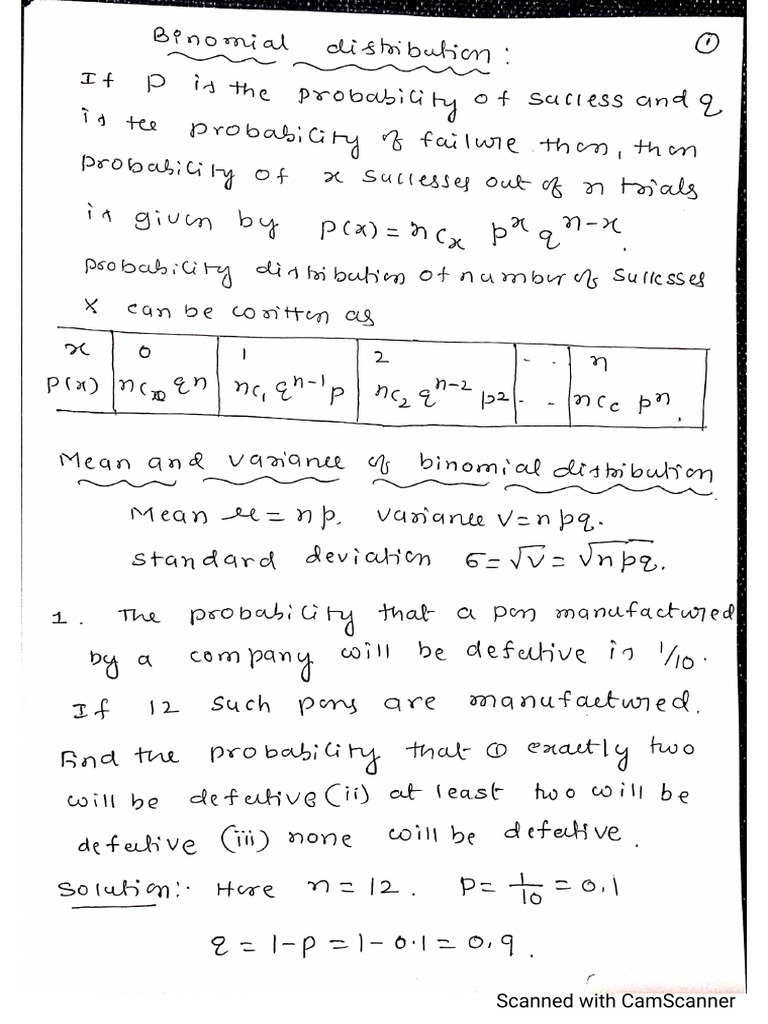 ①
Binomial distribution:
If p is the probability of success and q
is tee probability of failure then, then
probability of x successes out of n trials
is given by p(x) = nCx p^x q^n-x.
probability distribution of number of successes
X can be written as
x 0 1 2 . . n
p(x) nC0 q^n nC1 q^n-1 p nC2 q^n-2 p^2 . . nCc p^n.
Mean and variance of binomial distribution
Mean μ = np. variance V = npq.
standard deviation σ = √V = √npq.
1. The probability that a pen manufactured
by a company will be defective is 1/10.
If 12 such pens are manufactured.
Find the probability that ① exactly two
will be defective (ii) at least two will be
defective (iii) none will be defective.
Solution:- Here n = 12. P = 1/10 = 0.1
q = 1-p = 1-0.1 = 0.9.
Scanned with CamScanner